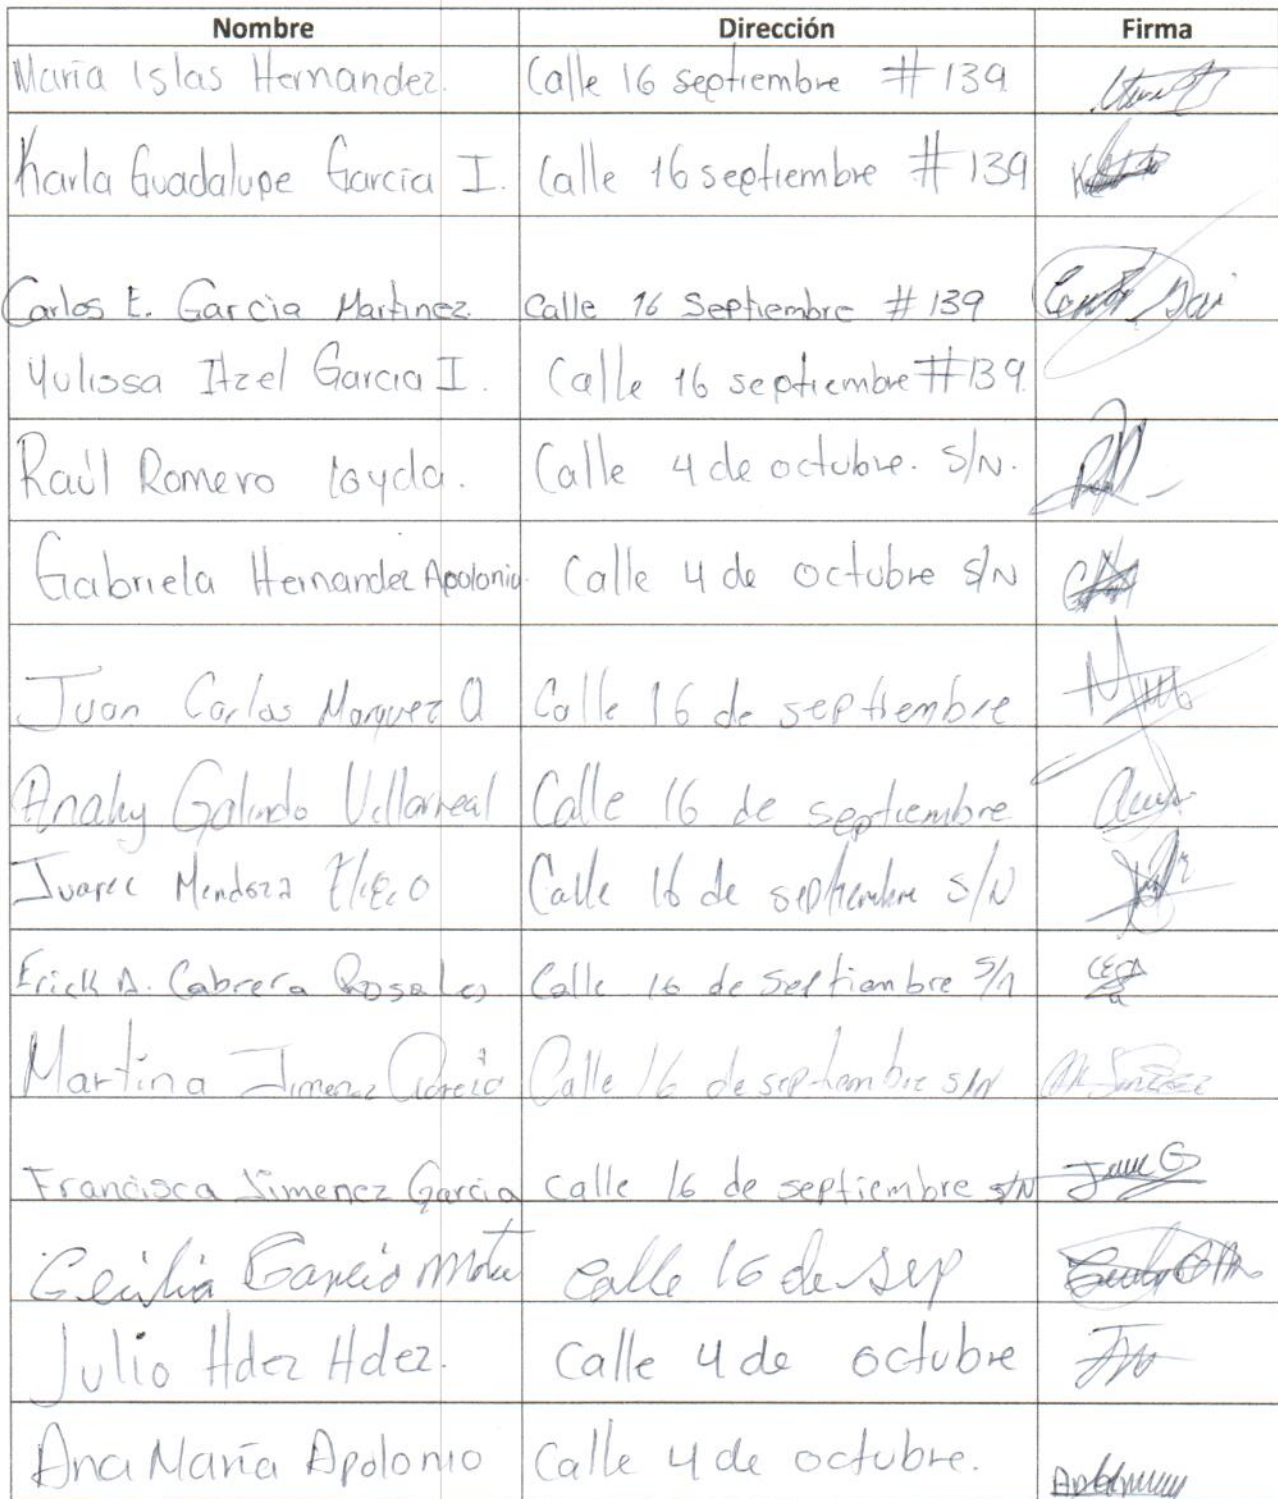 Nombre Dirección Firma
María Islas Hernandez. Calle 16 septiembre #139
Karla Guadalupe García I. Calle 16 septiembre #139
Carlos E. Garcia Martinez Calle 16 Septiembre #139
Yulissa Itzel Garcia I. Calle 16 septiembre #139
Raúl Romero loyda. Calle 4 de octubre. S/N.
Gabriela Hernandez Apolonio. Calle 4 de octubre S/N
Juan Carlos Marquez O Calle 16 de septiembre
Anahy Galindo Villarreal Calle 16 de septiembre
Juarez Mendoza Calle 16 de septiembre S/N
Erick A. Cabrera Rosales Calle 16 de septiembre S/n
Martina Jimenez Calle 16 de septiembre S/N
Francisca Jimenez Garcia calle 16 de septiembre s/N
Cecilia Garcia Mota Calle 16 de sep
Julio Hdez Hdez. Calle 4 de octubre
Ana María Apolonio Calle 4 de octubre.